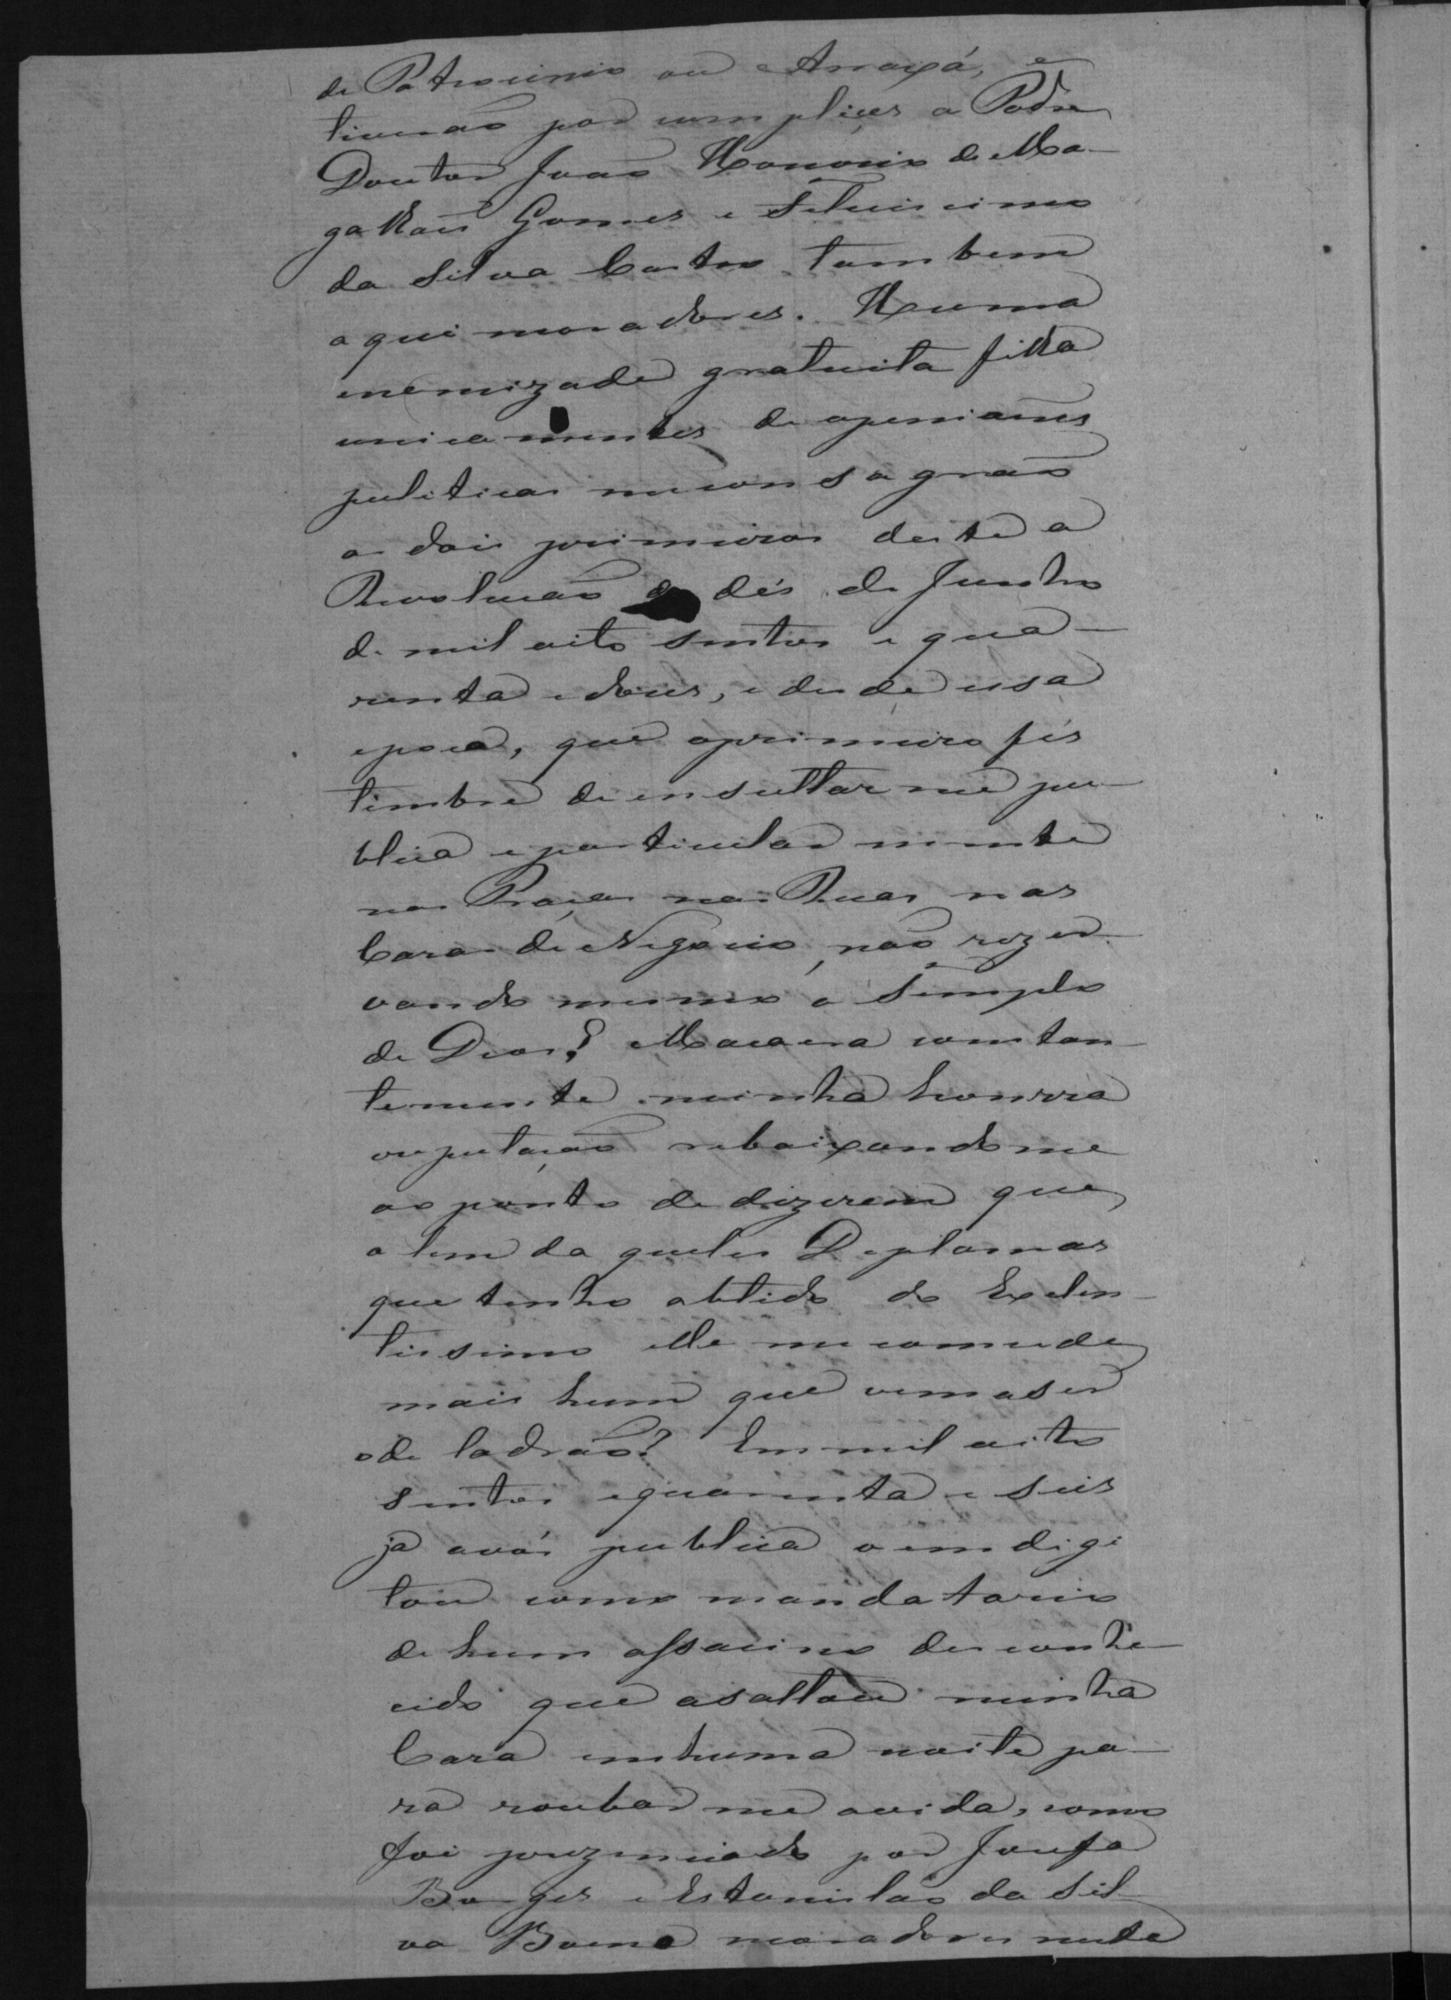 de Patrocinio ou Arraxá, e
tiverão por complices o Padre
Doutor João Honorio de Ma-
galhais Gomes e
da Silva Castro tambem
aqui moradores. Huma
enemizade gratuita filha
unicamentes de openiaões
puliticas me consagrão
os dois primeiros deste a
Revolucão de dés de Junho
de mil oito sentos e qua-
renta e dous, e desde essa
epoca, que oprimeiro fés
timbre de ensultar me pu-
blica eparticular mente
nas Praças nas Ruas nas
Cazas de Negocio, não rezer-
vando mesmo o Templo
de Deos? Macára constan-
temente minha honrra
reputação rebaixandome
ao ponto de dizerem que
a lem da queles Deplomas
que tenho obtido do Exelen-
tissimo elle me comcede
mais hum que vem aser
ode ladrão? Em mil oito
sentos equarenta e seis
ja avós publica o emdigi
tou como mandatario
de hum assacino desconhe-
cido que asaltou minha
Caza em huma noite pa-
ra roubar me avida, como
foi prezenciado por Joze fa
Borges e Estanislão da Sil-
va Bueno moradores neste